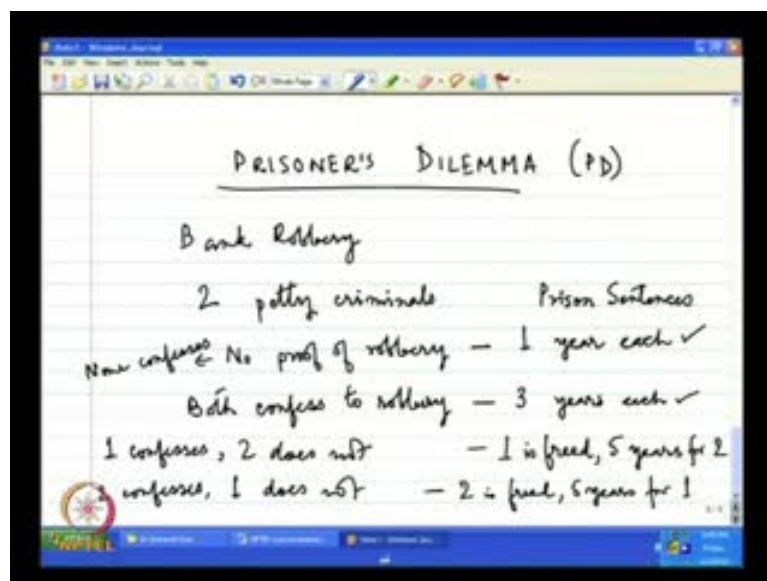 PRISONER'S DILEMMA (PD)
Bank Robbery
2 petty criminals Prison Sentences
None confesses ← No proof of robbery — 1 year each ✓
Both confess to robbery — 3 years each ✓
1 confesses, 2 does not — 1 is freed, 5 years for 2
2 confesses, 1 does not — 2 is freed, 5 years for 1
NPTEL